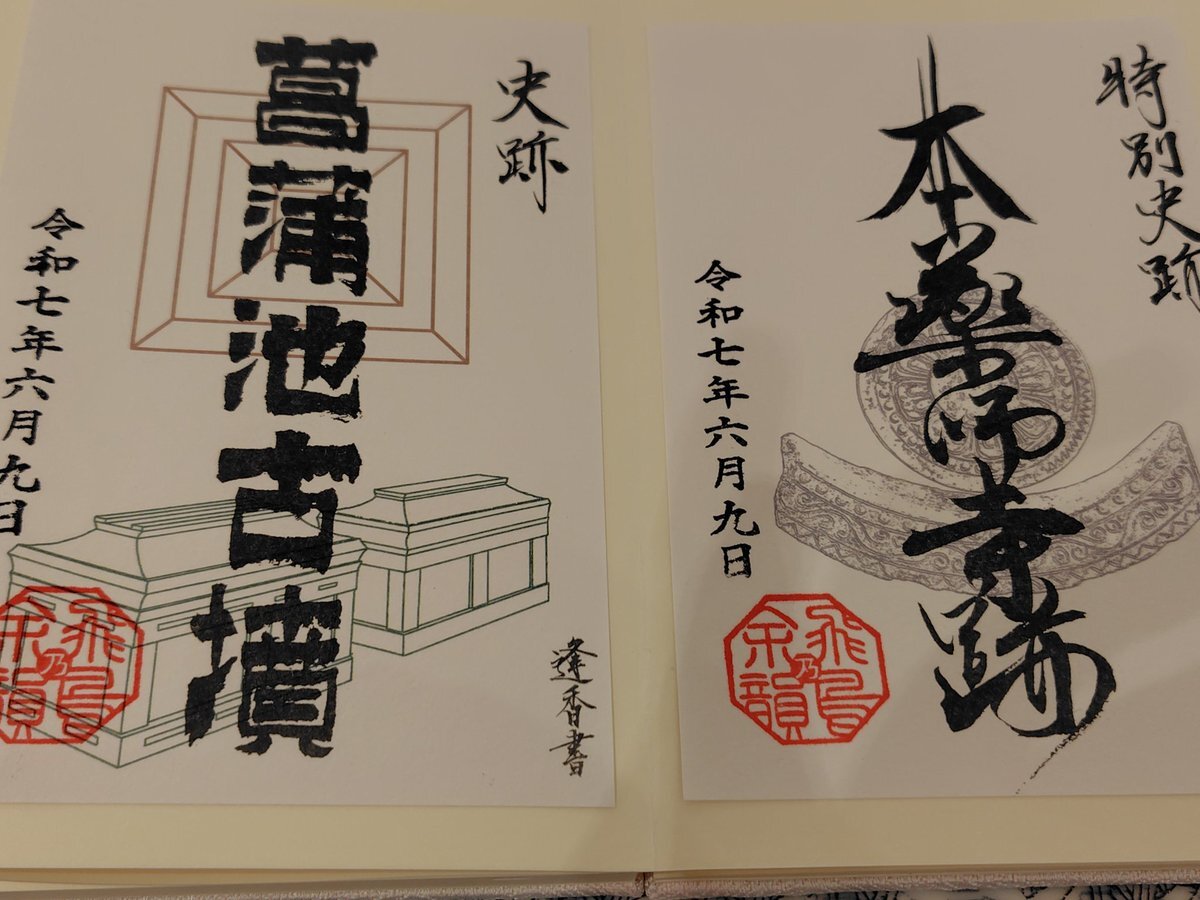 特別史跡
本薬師寺跡
令和七年六月九日
飛鳥乃余韻
史跡
菖蒲池古墳
令和七年六月九日
飛鳥乃余韻
逢香書